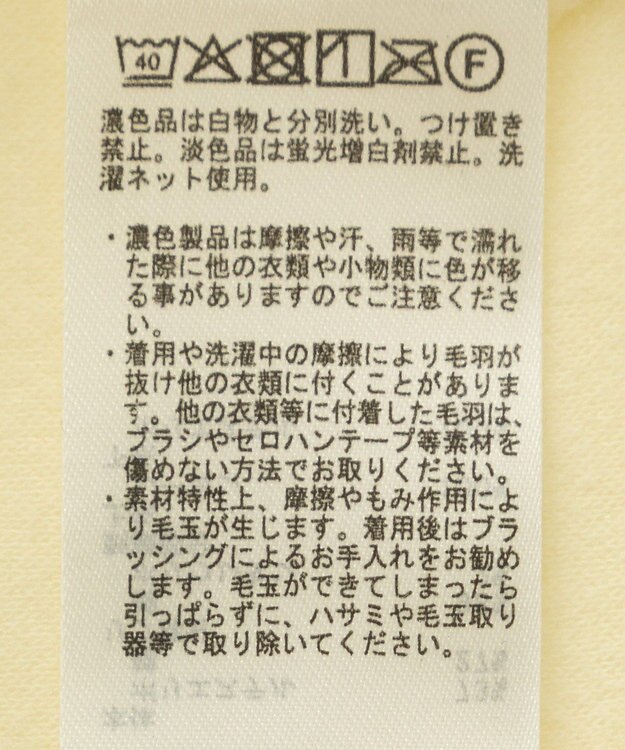 40 F
濃色品は白物と分別洗い。つけ置き
禁止。淡色品は蛍光増白剤禁止。洗
濯ネット使用。
・濃色製品は摩擦や汗、雨等で濡れ
た際に他の衣類や小物類に色が移
る事がありますのでご注意くださ
い。
・着用や洗濯中の摩擦により毛羽が
抜け他の衣類に付くことがありま
す。他の衣類等に付着した毛羽は、
ブラシやセロハンテープ等素材を
傷めない方法でお取りください。
・素材特性上、摩擦やもみ作用によ
り毛玉が生じます。着用後はブラ
ッシングによるお手入れをお勧め
します。毛玉ができてしまったら
引っぱらずに、ハサミや毛玉取り
器等で取り除いてください。
27%
ポリエステル 73%
本体